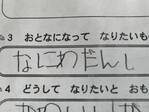 3 おとなになって なりたいもの
なにわだんし
4 どうして なりたいと おも